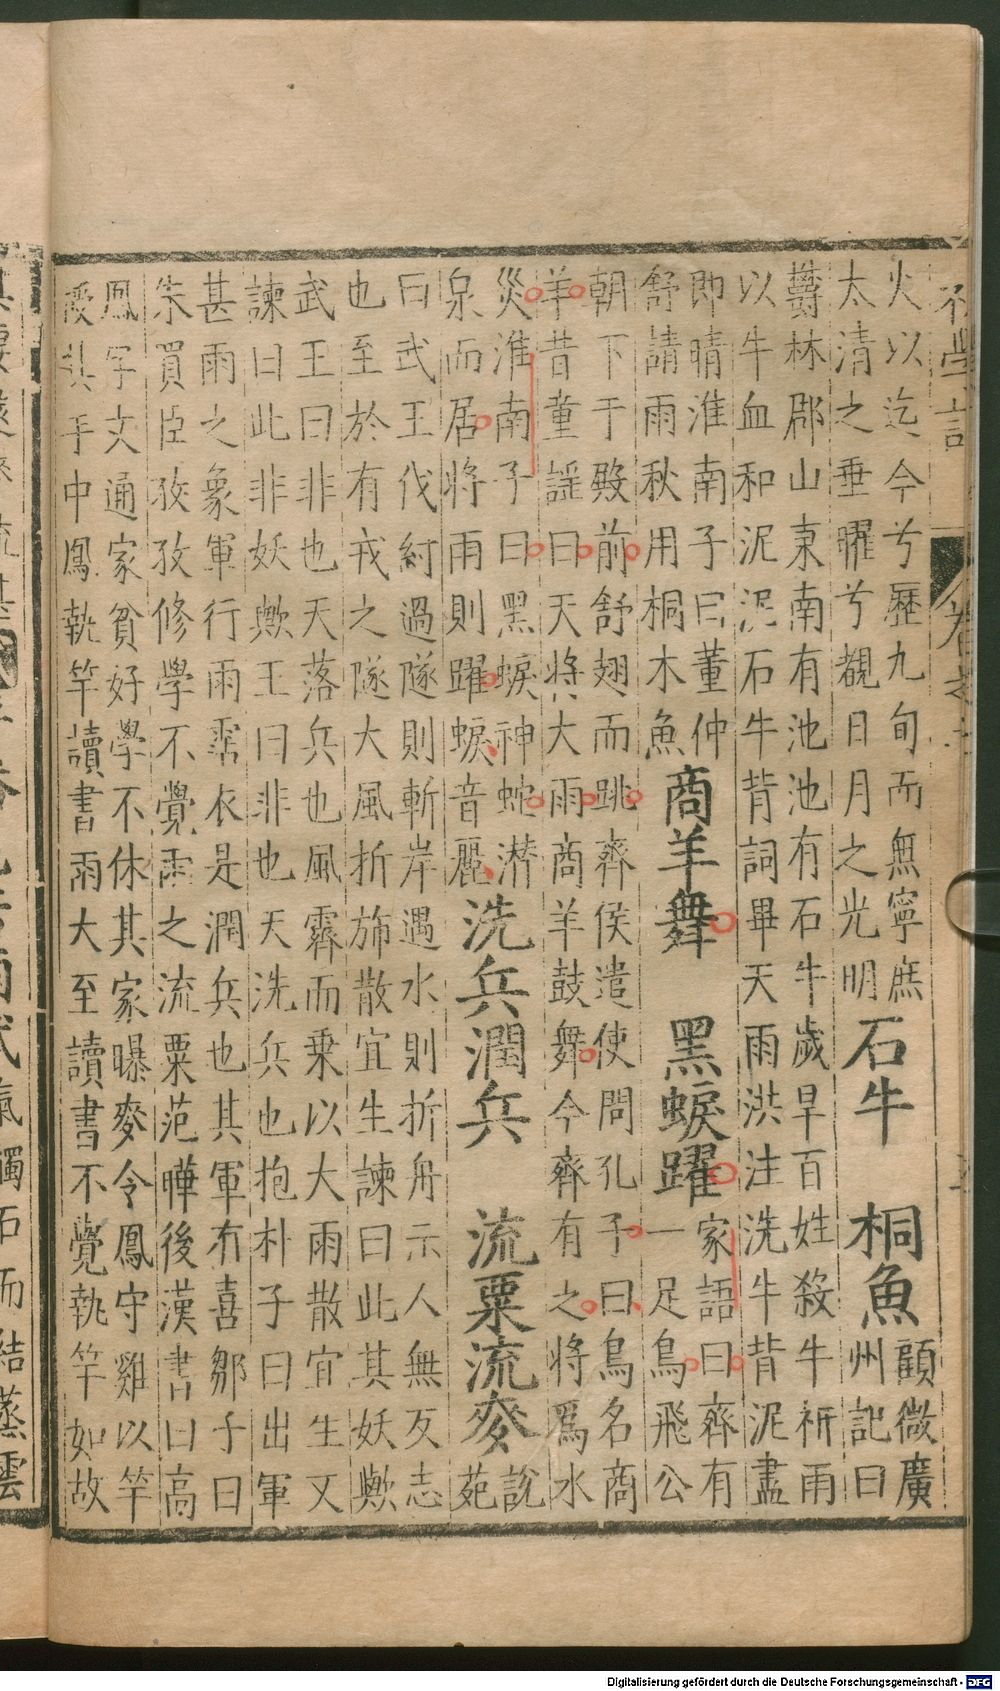 初學記
火以迄今兮歷九旬而無寧庶
太清之垂曜兮覩日月之光明
石牛 桐魚
顧微廣
州記曰
鬱林郡山東南有池池有石牛歲旱百姓殺牛祈雨
以牛血和泥泥石牛背詞畢天雨洪注洗牛背泥盡
即晴淮南子曰董仲
舒請雨秋用桐木魚
商羊舞 黑蜧躍
家語曰齊有
一足鳥飛公
朝下于殿前舒翅而跳齊侯遣使問孔子曰鳥名商
羊昔童謡曰天將大雨商羊鼓舞今齊有之將爲水
災淮南子曰黑蜧神蛇潜
泉而居將雨則躍蜧音麗
洗兵潤兵 流粟流麥
説
苑
曰武王伐紂過隧則斬岸遇水則折舟示人無反志
也至於有戎之隧大風折旆散宜生諫曰此其妖歟
武王曰非也天落兵也風霽而乗以大雨散宜生又
諫曰此非妖歟王曰非也天洗兵也抱朴子曰出軍
甚雨之象軍行雨霑衣是潤兵也其軍有喜鄒子曰
朱買臣孜孜修學不覺雨之流粟范曄後漢書曰高
鳳字文通家貧好學不休其家曝麥令鳳守雞以竿
授其手中鳳執竿讀書雨大至讀書不覺執竿如故
氣觸石而結蒸雲
Digitalisierung gefördert durch die Deutsche Forschungsgemeinschaft - DFG